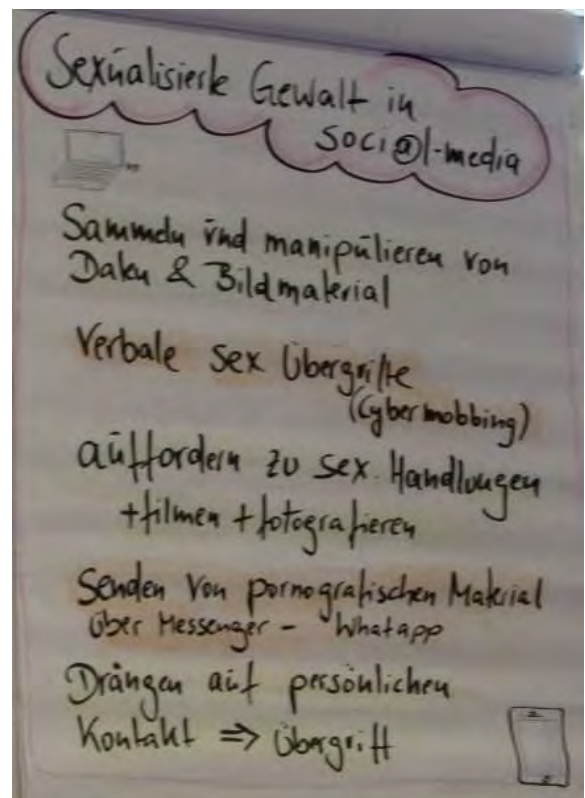 Sexualisierte Gewalt in
soci@l-media
Sammeln und manipulieren von
Daten & Bildmaterial
Verbale sex Übergriffe
(Cybermobbing)
auffordern zu sex. Handlungen
+filmen +fotografieren
Senden von pornografischen Material
über Messenger - Whatapp
Drängen auf persönlichen
Kontakt ⇒ Übergriff